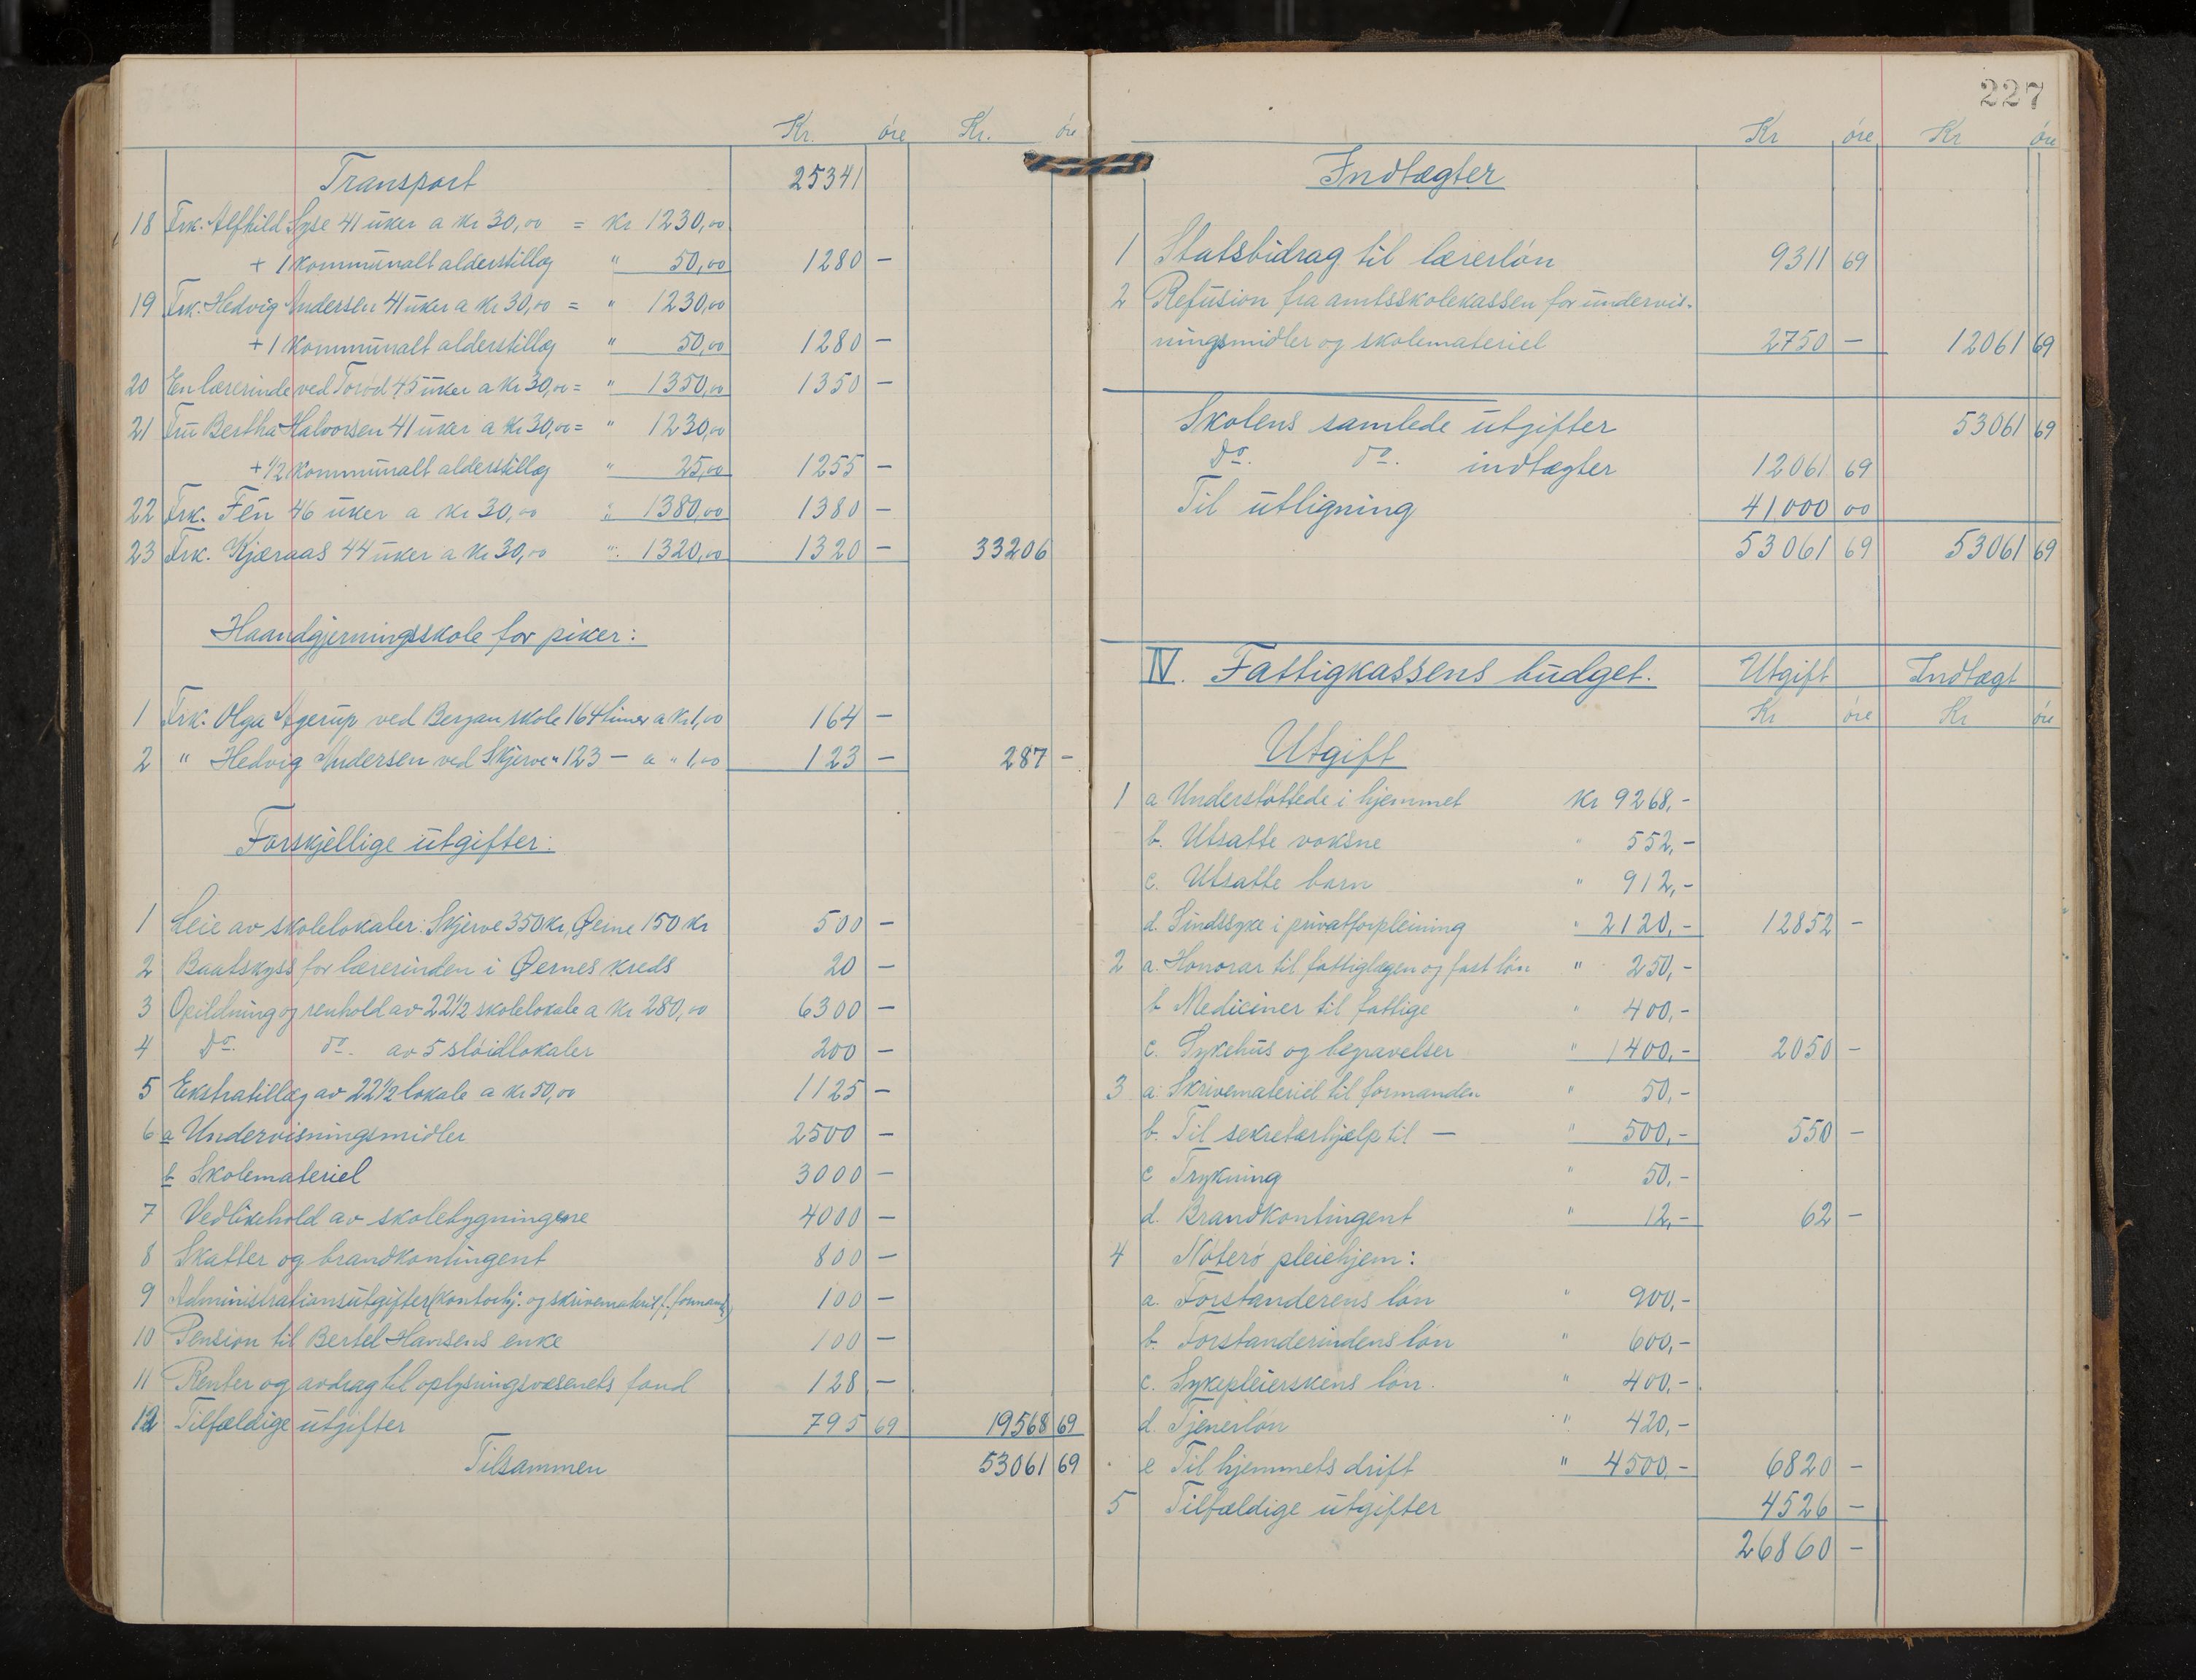 Kr. öre Kr. öre
Transport 25341
18 Frk. Alfhild Syse 41 uker a kr 30,00 = kr 1230,00
+ 1 kommunalt alderstillæg " 50,00 1280 —
19 Frk. Hedvig Andersen 41 uker a kr 30,00 = " 1230,00
+ 1 kommunalt alderstillæg " 50,00 1280 —
20 En lærerinde ved Torød 45 uker a kr 30,00 = " 1350,00 1350 —
21 Fru Bertha Halvorsen 41 uker a kr 30,00 = " 1230,00
+ 1/2 kommunalt alderstillæg " 25,00 1255 —
22 Frk. Fén 46 uker a kr 30,00 " 1380,00 1380 —
23 Frk. Kjæraas 44 uker a kr 30,00 " 1320,00 1320 — 33206
Haandgjerningsskole for piker:
1 Frk. Olga Agerup ved Bergan skole 164 timer a kr 1,00 164 —
2 " Hedvig Andersen ved Skjerve " 123 — a " 1,00 123 — 287 —
Forskjellige utgifter:
1 Leie av skolelokaler: Skjerve 350 kr, Øeine 150 kr 500 —
2 Baatskyss for lærerinden i Øernes kreds 20 —
3 Opildning og renhold av 22 1/2 skolelokale a kr 280,00 6300 —
4 Do. do. av 5 sløidlokaler 200 —
5 Ekstratillæg av 22 1/2 lokale a kr 50,00 1125 —
6 a Undervisningsmidler 2500 —
b Skolemateriel 3000 —
7 Vedlikehold av skolebygningene 4000 —
8 Skatter og brandkontingent 800 —
9 Administrationsutgifter (kontorhj. og skrivemateriel f. formand) 100 —
10 Pension til Bertel Hansens enke 100 —
11 Renter og avdrag til oplysningsvæsenets fond 128 —
12 Tilfældige utgifter 795 69 19568 69
Tilsammen 53061 69
227
Kr öre Kr öre
Indtægter
1 Statsbidrag til lærerløn 9311 69
2 Refusion fra amtsskolekassen for undervis-
ningsmidler og skolemateriel 2750 — 12061 69
Skolens samlede utgifter 53061 69
Do. do. indtægter 12061 69
Til utligning 41000 00
53061 69 53061 69
IV. Fattigkassens budget. Utgift Indtægt
Kr öre Kr öre
Utgift
1 a Understøttede i hjemmet Kr 9268,-
b. Utsatte voksne " 552,-
c. Utsatte barn " 912,-
d. Sindssyke i privatforpleining " 2120,- 12852 —
2 a. Honorar til fattiglægen og fast løn " 250,-
b Mediciner til fattige " 400,-
c. Sykehus og begravelser " 1400,- 2050 —
3 a. Skrivemateriel til formanden " 50,-
b. Til sekretærhjælp til — " 500,- 550 —
c Trykning " 50,-
d. Brandkontingent " 12,- 62 —
4 Nøterø pleiehjem:
a. Forstanderens løn " 900,-
b. Forstanderindens løn " 600,-
c. Sykepleierskens løn. " 400,-
d. Tjenerløn " 420,-
e Til hjemmets drift " 4500,- 6820 —
5 Tilfældige utgifter 4526 —
26860 —